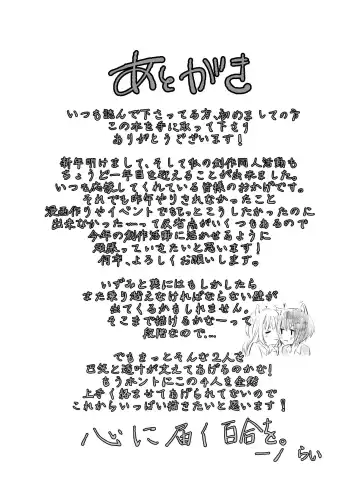 あとがき
いつも読んで下さってる方、初めましての方
この本を手に取って下さり
ありがとうございます！
新年明けまして、そして私の創作同人活動も
ちょうど一年目を迎えることが出来ました。
いつも応援してくれている皆様のおかげです。
それでも昨年やりきれなかったこと
漫画作りやイベントでももっとこうしたかったのに
出来なかったーって反省点がいくつもあるので
今年の創作活動に活かせるように
頑張っていきたいと思います！
何卒、よろしくお願いします。
いずみと葵にはもしかしたら
また乗り越えなければならない壁が
出てくるかもしれません。
そこまで描けるかなーって
段階なので…
でもきっとそんな2人を
巴気と遥叶が支えてあげるのかな！
もうホントにこの4人を全然
上手く絡ませてあげられてないので
これからいっぱい描きたいと思います！
心に届く百合を。
一ノ らい